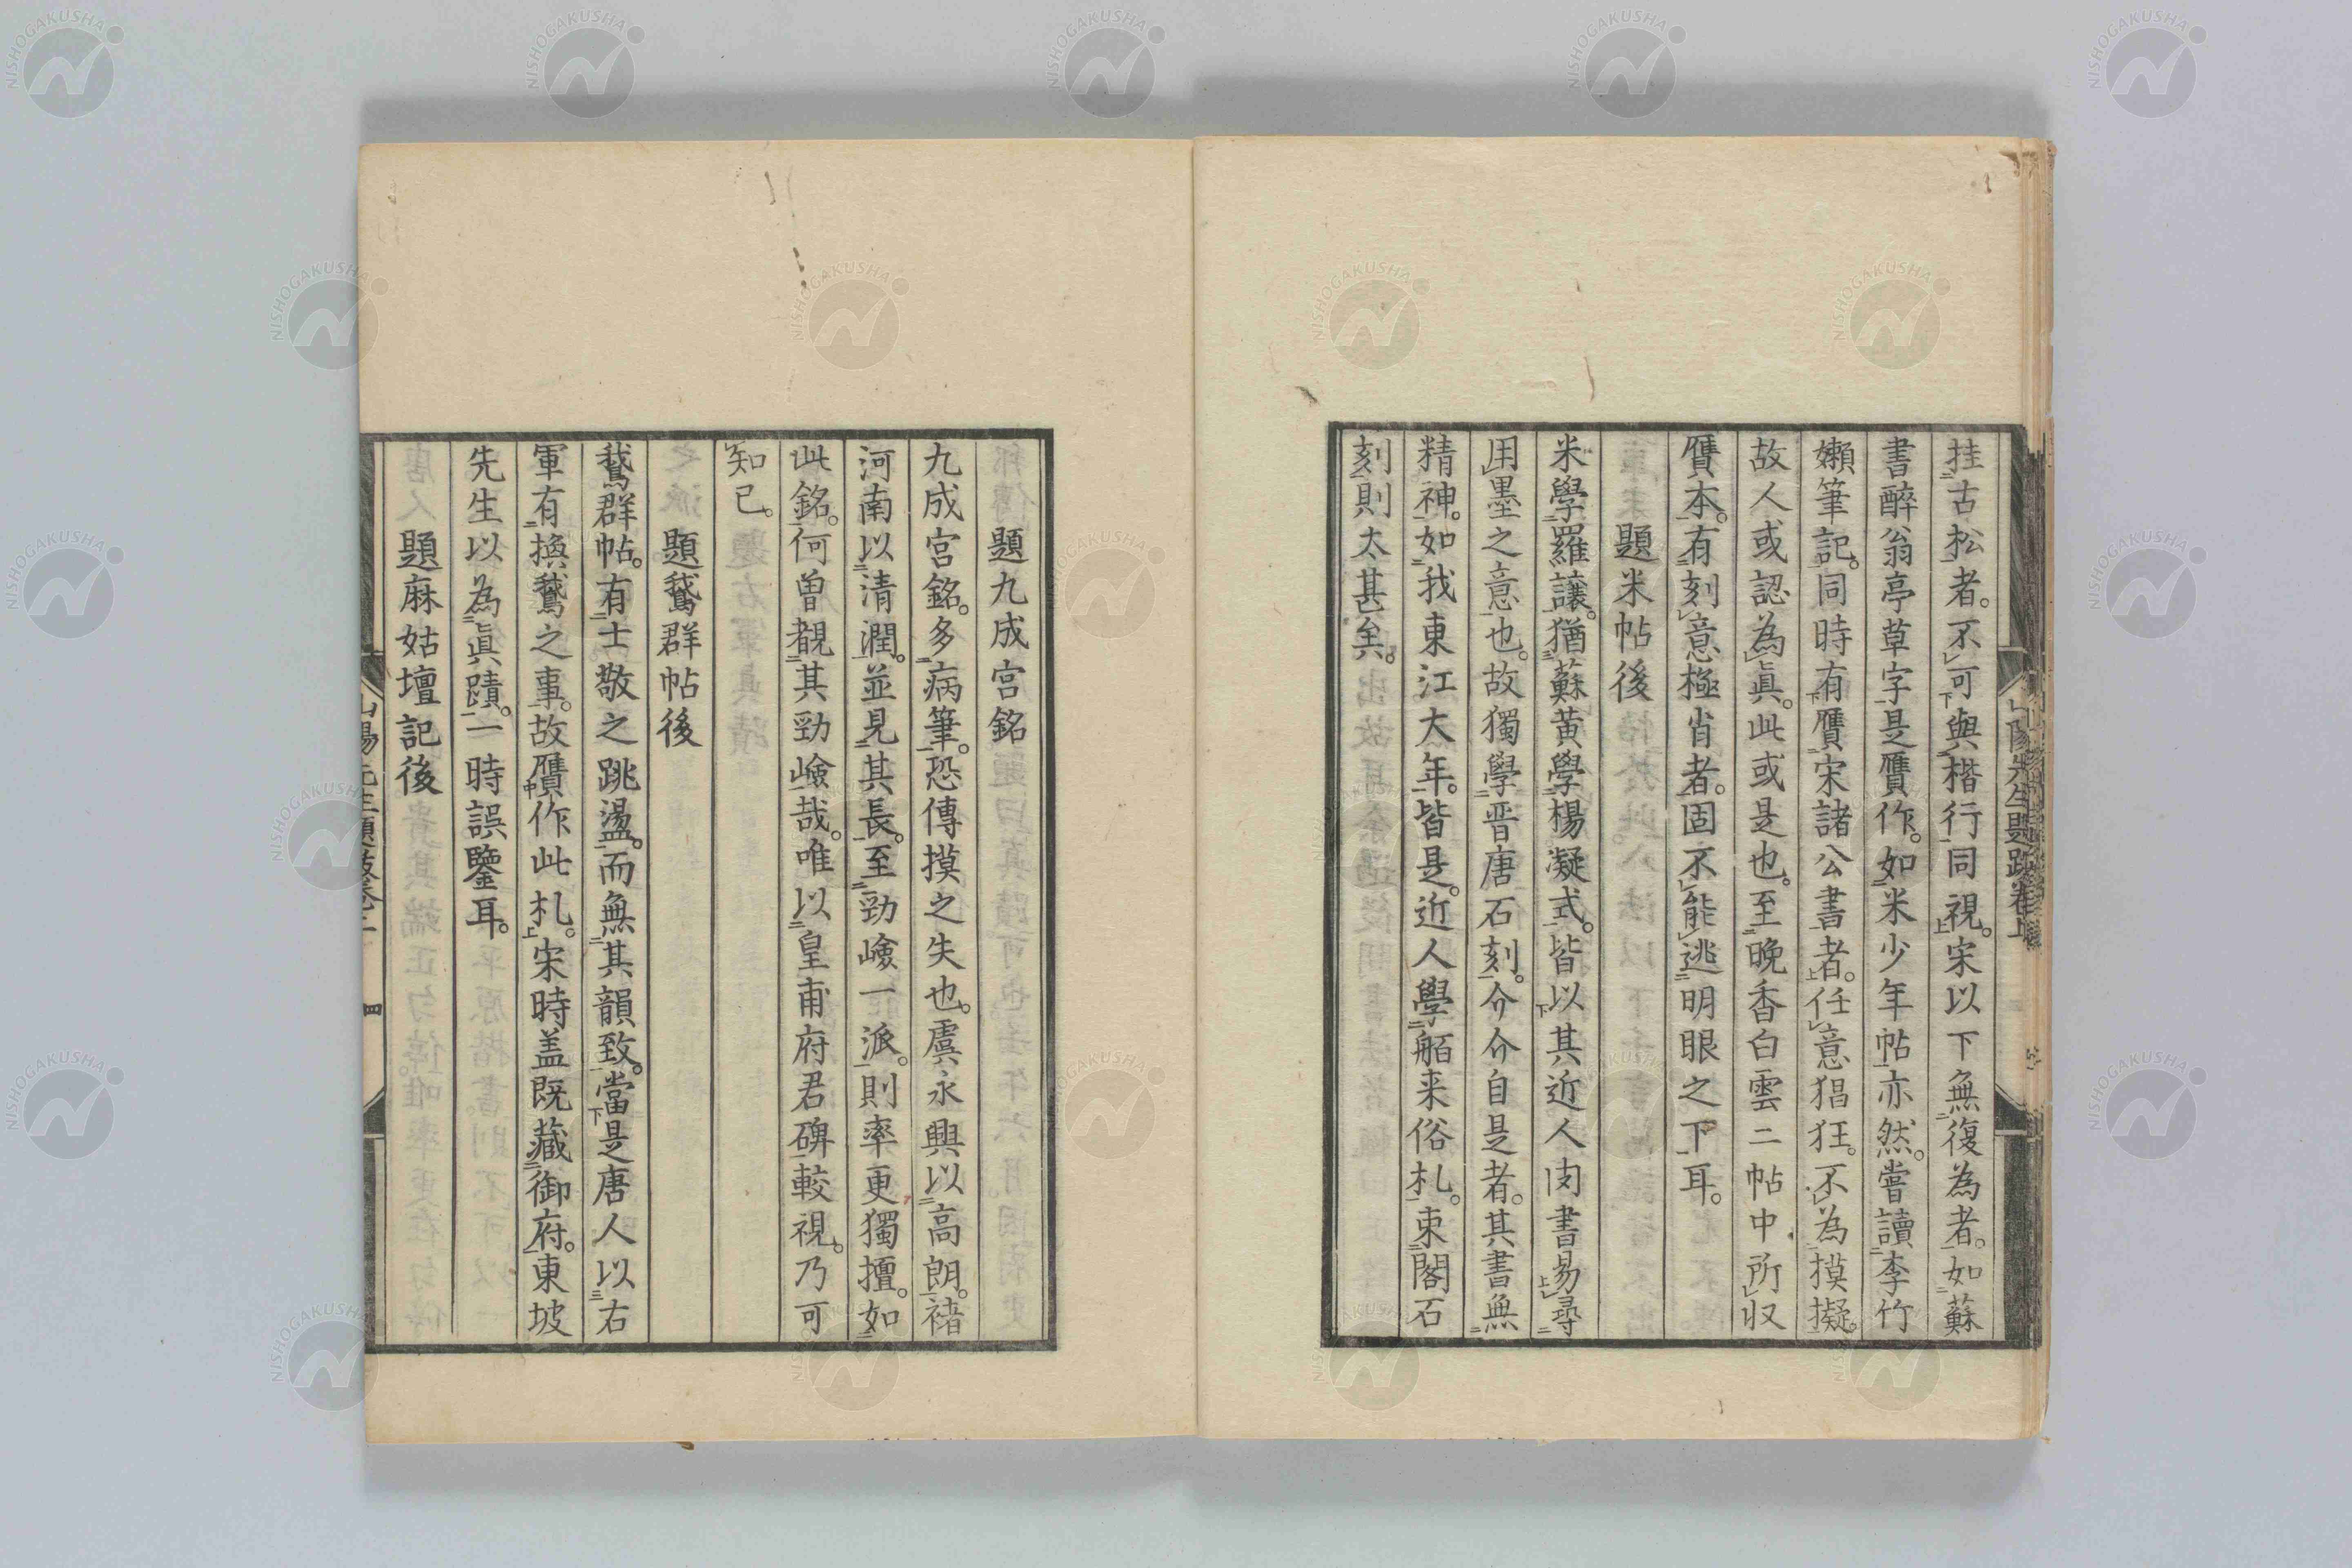 挂古松者。不可與楷行同視。宋以下無復為者。如蘇
書醉翁亭草字是贋作。如米少年帖亦然。嘗讀李竹
嬾筆記。同時有贋宋諸公書者。任意猖狂。不為摸擬。
故人或認為眞。此或是也。至晚香白雲二帖中所収
贋本。有刻意極肖者。固不能逃明眼之下耳。
題米帖後
米學羅讓。猶蘇黄學楊凝式。皆以其近人肉書易尋
用墨之意也。故獨學晋唐石刻。介介自是者。其書無
精神。如我東江大年。皆是。近人學舶来俗札。東閣石
刻則太甚矣。
題九成宮銘
九成宮銘。多病筆。恐傳摸之失也。虞永興以高朗。禇
河南以清潤。並見其長。至勁嶮一派。則率更獨擅。如
此銘。何曽覩其勁嶮哉。唯以皇甫府君碑較視。乃可
知已。
題鵞群帖後
鵞群帖。有士敬之跳盪。而無其韻致。當是唐人以右
軍有換鵞之事。故贋作此札。宋時盖既藏御府。東坡
先生以為眞蹟。一時誤鑒耳。
題麻姑壇記後